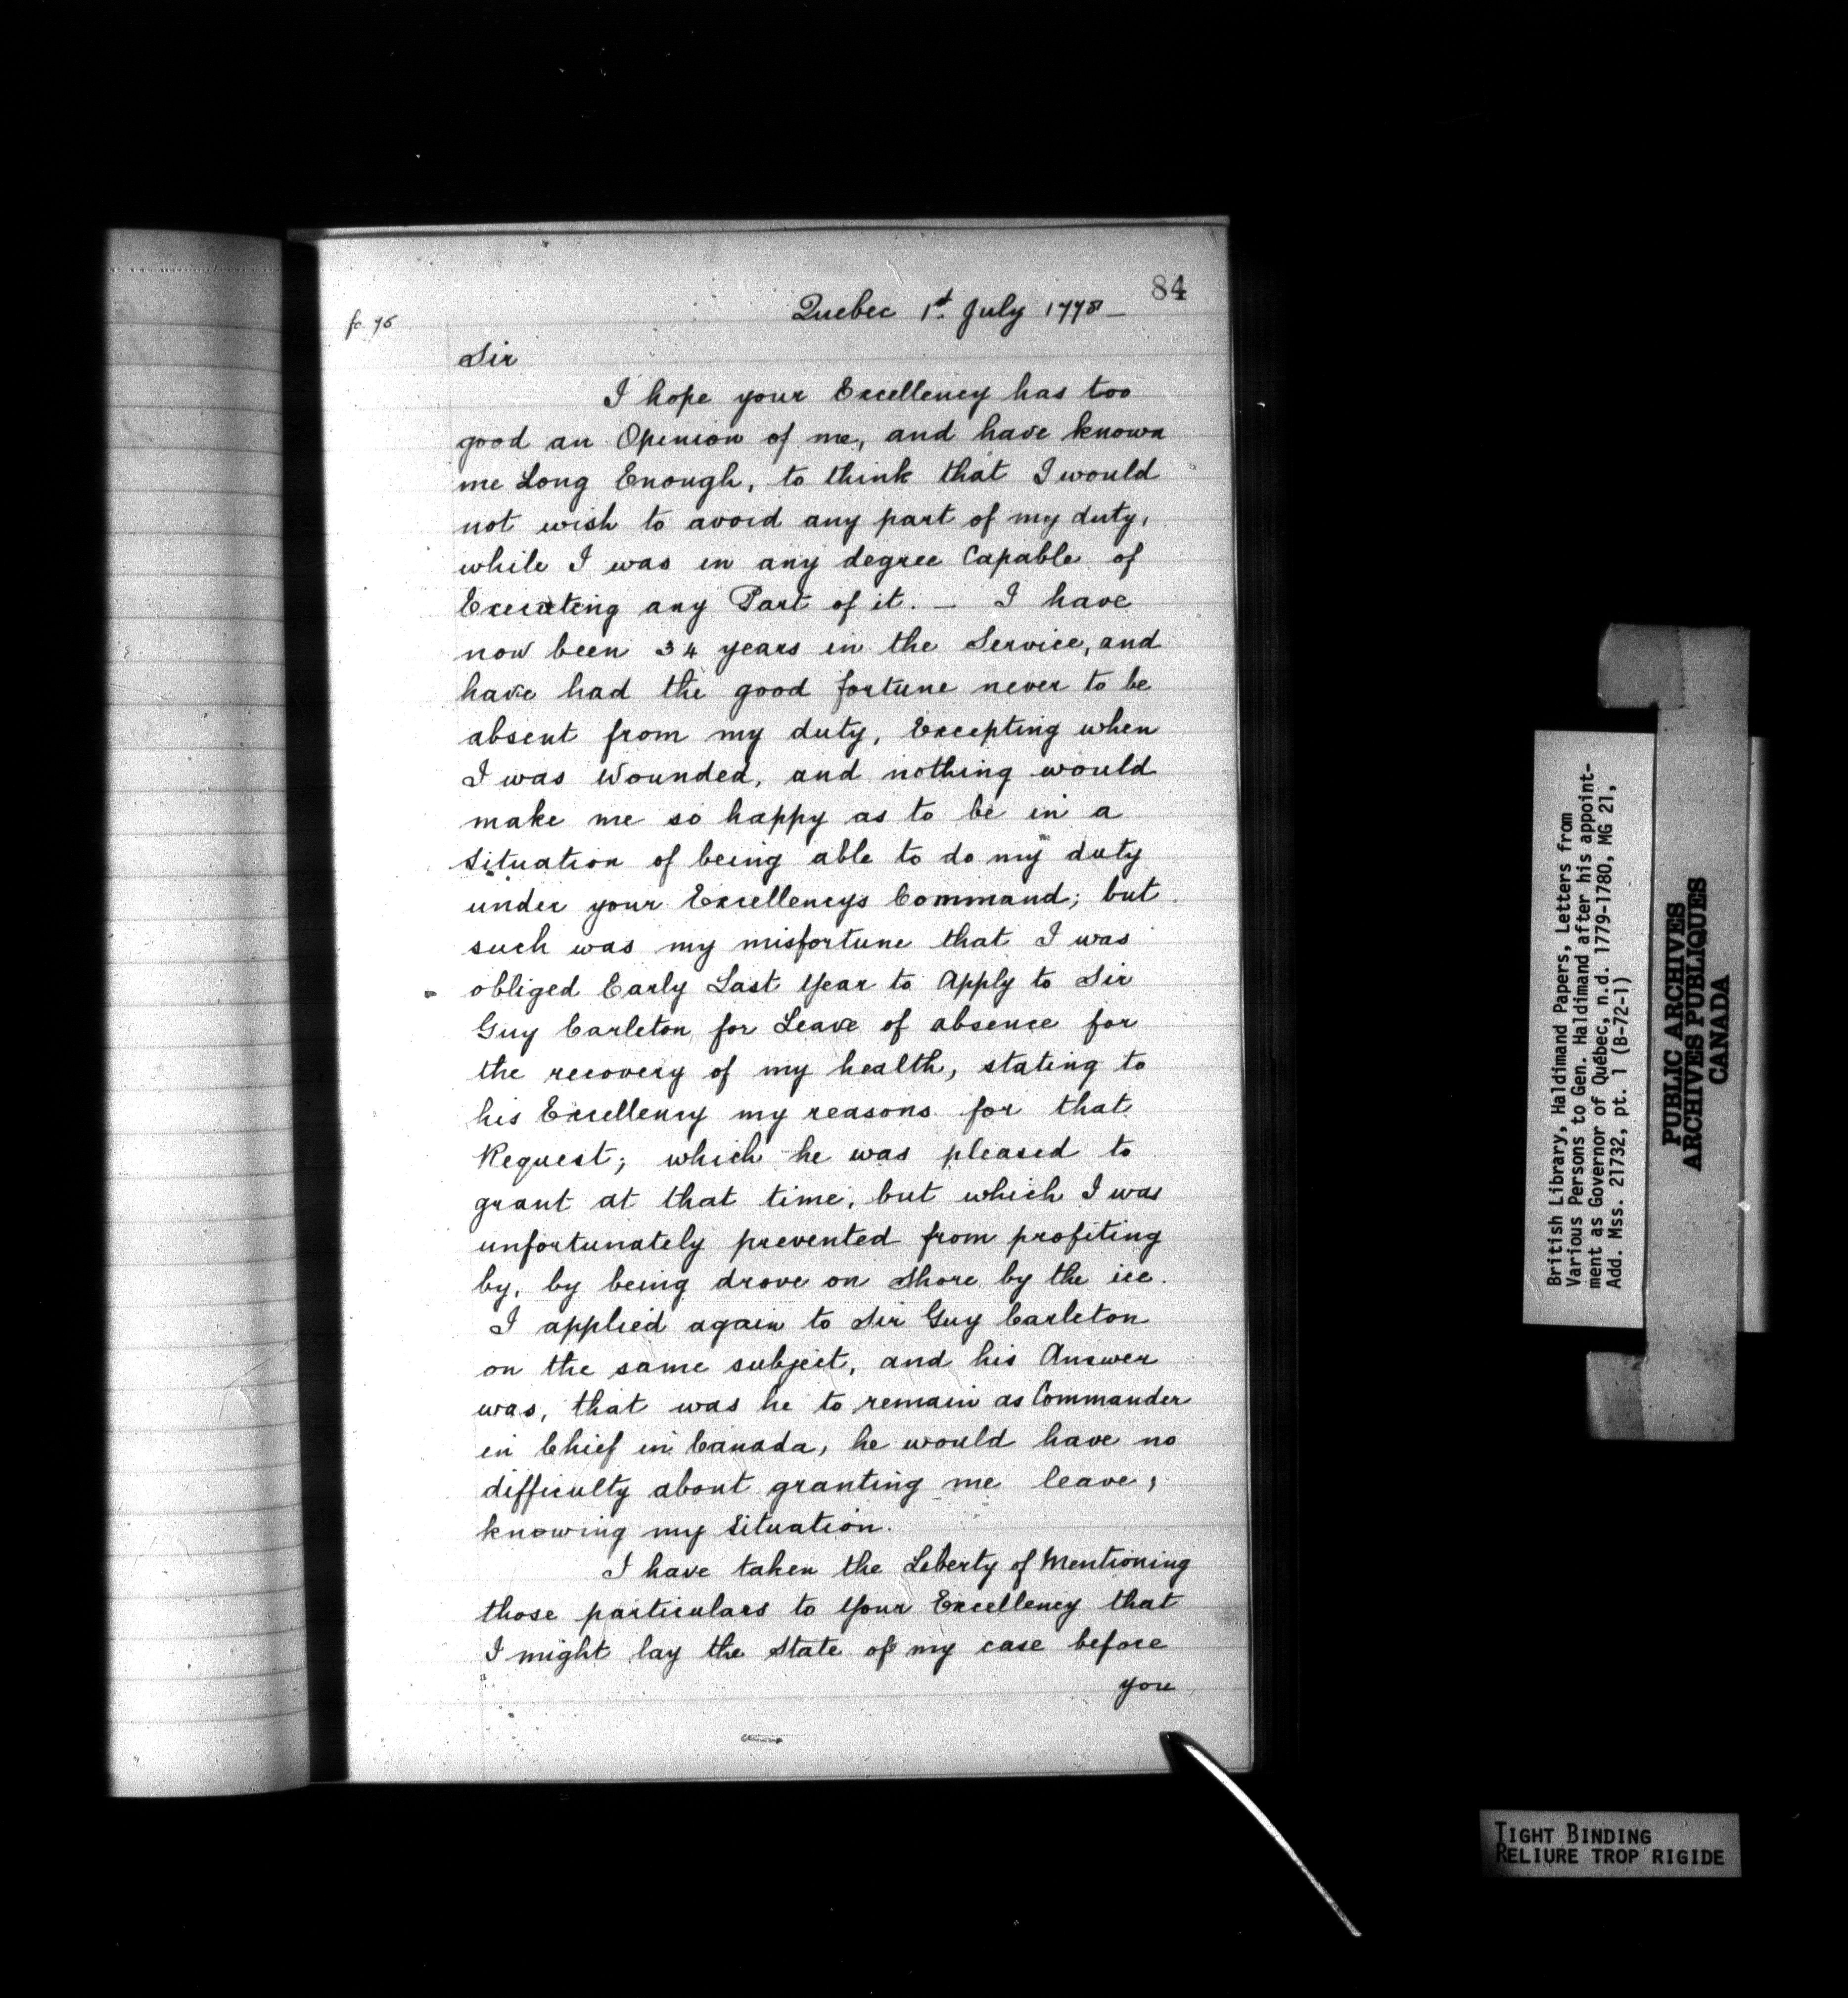 84
Quebec 1st July 1778 —
fo. 75
Sir
I hope your Excellency has too
good an Openion of me, and have known
me Long Enough, to think that I would
not wish to avoid any part of my duty,
while I was in any degree Capable of
Executing any Part of it. — I have
now been 34 years in the Service, and
have had the good fortune never to be
absent from my duty, Excepting when
I was Wounded, and nothing would
make me so happy as to be in a
situation of being able to do my duty
under your Excellencys Command; but
such was my misfortune that I was
obliged Early Last Year to Apply to Sir
Guy Carleton for Leave of absence for
the recovery of my health, stating to
his Excellency my reasons for that
Request; which he was pleased to
grant at that time, but which I was
unfortunately prevented from profiting
by, by being drove on Shore by the ice.
I applied again to Sir Guy Carleton
on the same subject, and his Answer
was, that was he to remain as Commander
in Chief in Canada, he would have no
difficulty about granting me leave,
knowing my Situation.
I have taken the Liberty of Mentioning
those particulars to Your Excellency that
I might lay the State of my case before
you
British Library, Haldimand Papers, Letters from
Various Persons to Gen. Haldimand after his appoint-
ment as Governor of Québec, n.d. 1779-1780, MG 21,
Add. Mss. 21732, pt. 1 (B-72-1)
PUBLIC ARCHIVES
ARCHIVES PUBLIQUES
CANADA
TIGHT BINDING
RELIURE TROP RIGIDE